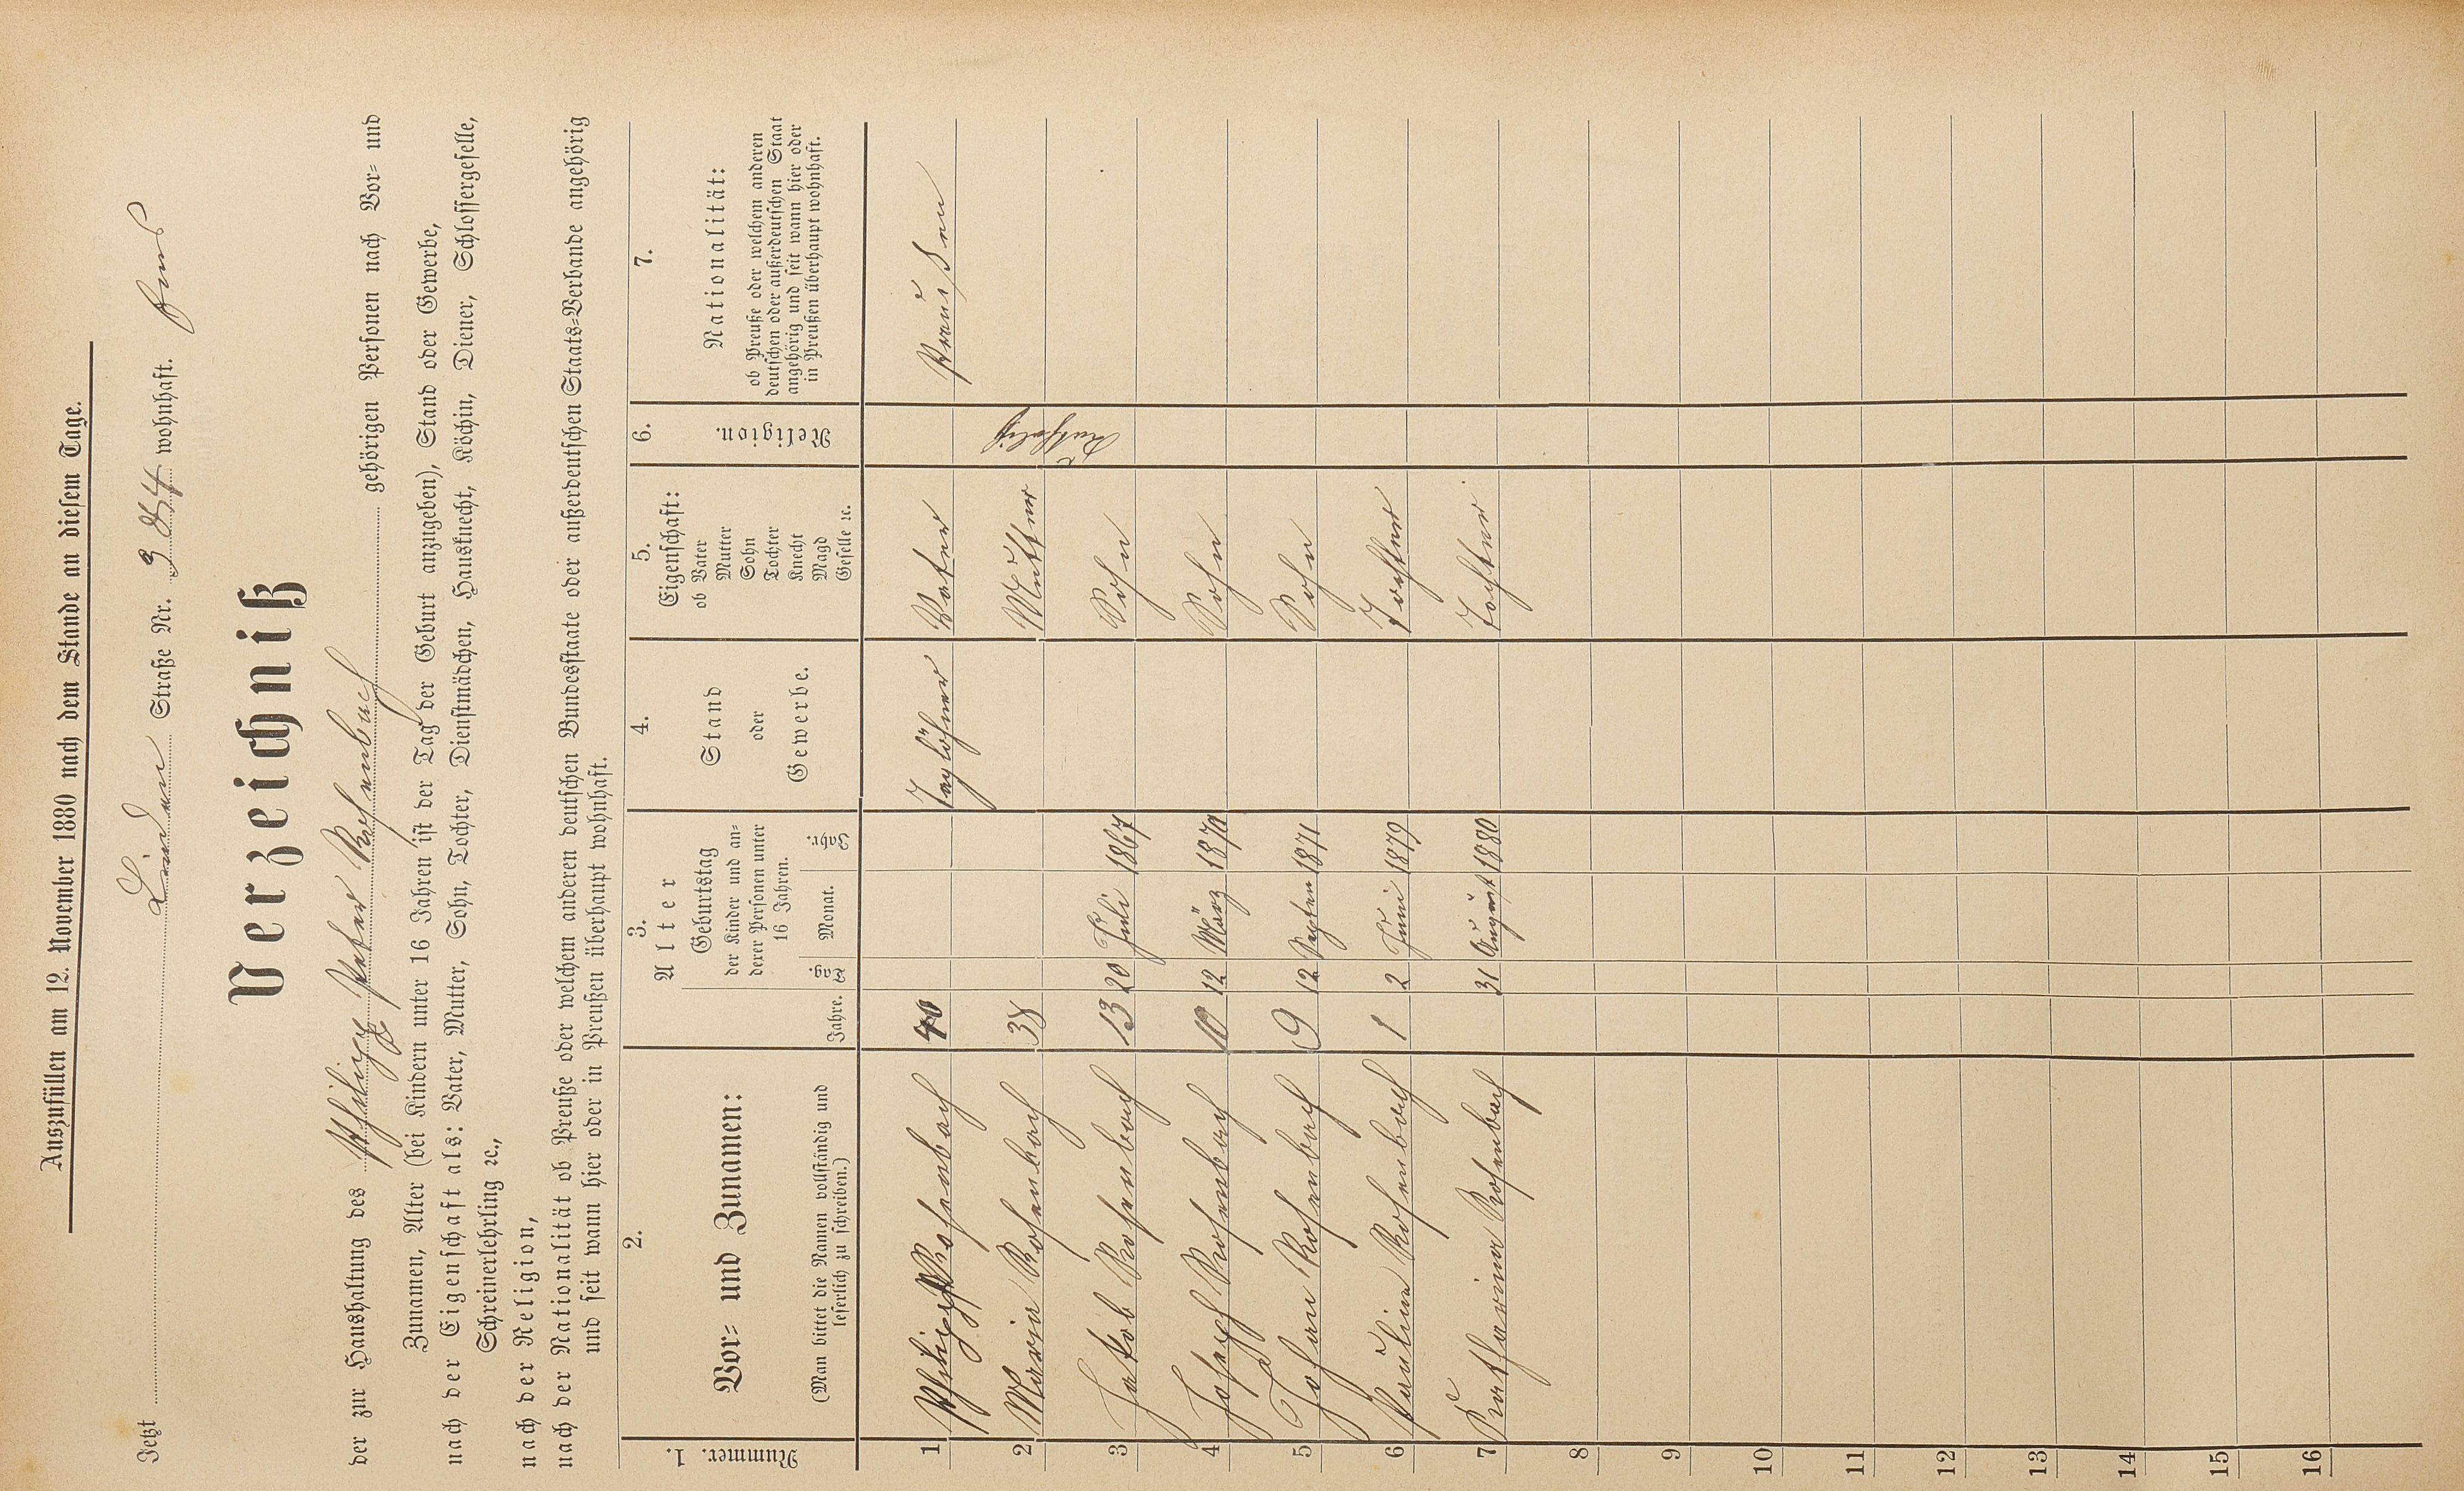 Auszufüllen am 12. November 1880 nach dem Stande an diesem Tage.
Jetzt Linden Straße Nr. 384 wohnhaft.
Verzeichniß
der zur Haushaltung des Philipp Peter Rosenbach gehörigen Personen nach Vor- und
Zunamen, Alter (bei Kindern unter 16 Jahren ist der Tag der Geburt anzugeben), Stand oder Gewerbe,
nach der Eigenschaft als: Vater, Mutter, Sohn, Tochter, Dienstmädchen, Hausknecht, Köchin, Diener, Schlossergeselle,
Schreinerlehrling ꝛc.,
nach der Religion,
nach der Nationalität ob Preuße oder welchem anderen deutschen Bundesstaate oder außerdeutschen Staats-Verbande angehörig
und seit wann hier oder in Preußen überhaupt wohnhaft.
1. Nummer.
2. Vor- und Zunamen:
(Man bittet die Namen vollständig und
leserlich zu schreiben.)
3. Alter
Jahre.
Geburtstag
der Kinder und an-
derer Personen unter
16 Jahren.
Tag. Monat. Jahr.
4. Stand
oder
Gewerbe.
5. Eigenschaft:
ob Vater
Mutter
Sohn
Tochter
Knecht
Magd
Geselle ꝛc.
6. Religion.
7. Nationalität:
ob Preuße oder welchem anderen
deutschen oder außerdeutschen Staat
angehörig und seit wann hier oder
in Preußen überhaupt wohnhaft.
1 Philipp Rosenbach 40 Taglöhner Vater Preußen
2 Maria Rosenbach 38 Mutter Katholisch
3 Jakob Rosenbach 13 20 Juli 1867 Sohn
4 Joseph Rosenbach 10 12 März 1870 Sohn
5 Johan Rosenbach 9 12 Septen 1871 Sohn
6 Paulina Rosenbach 1 2 Juni 1879 Tochter
7 Katharina Rosenbach 31 August 1880 Tochter
8
9
10
11
12
13
14
15
16